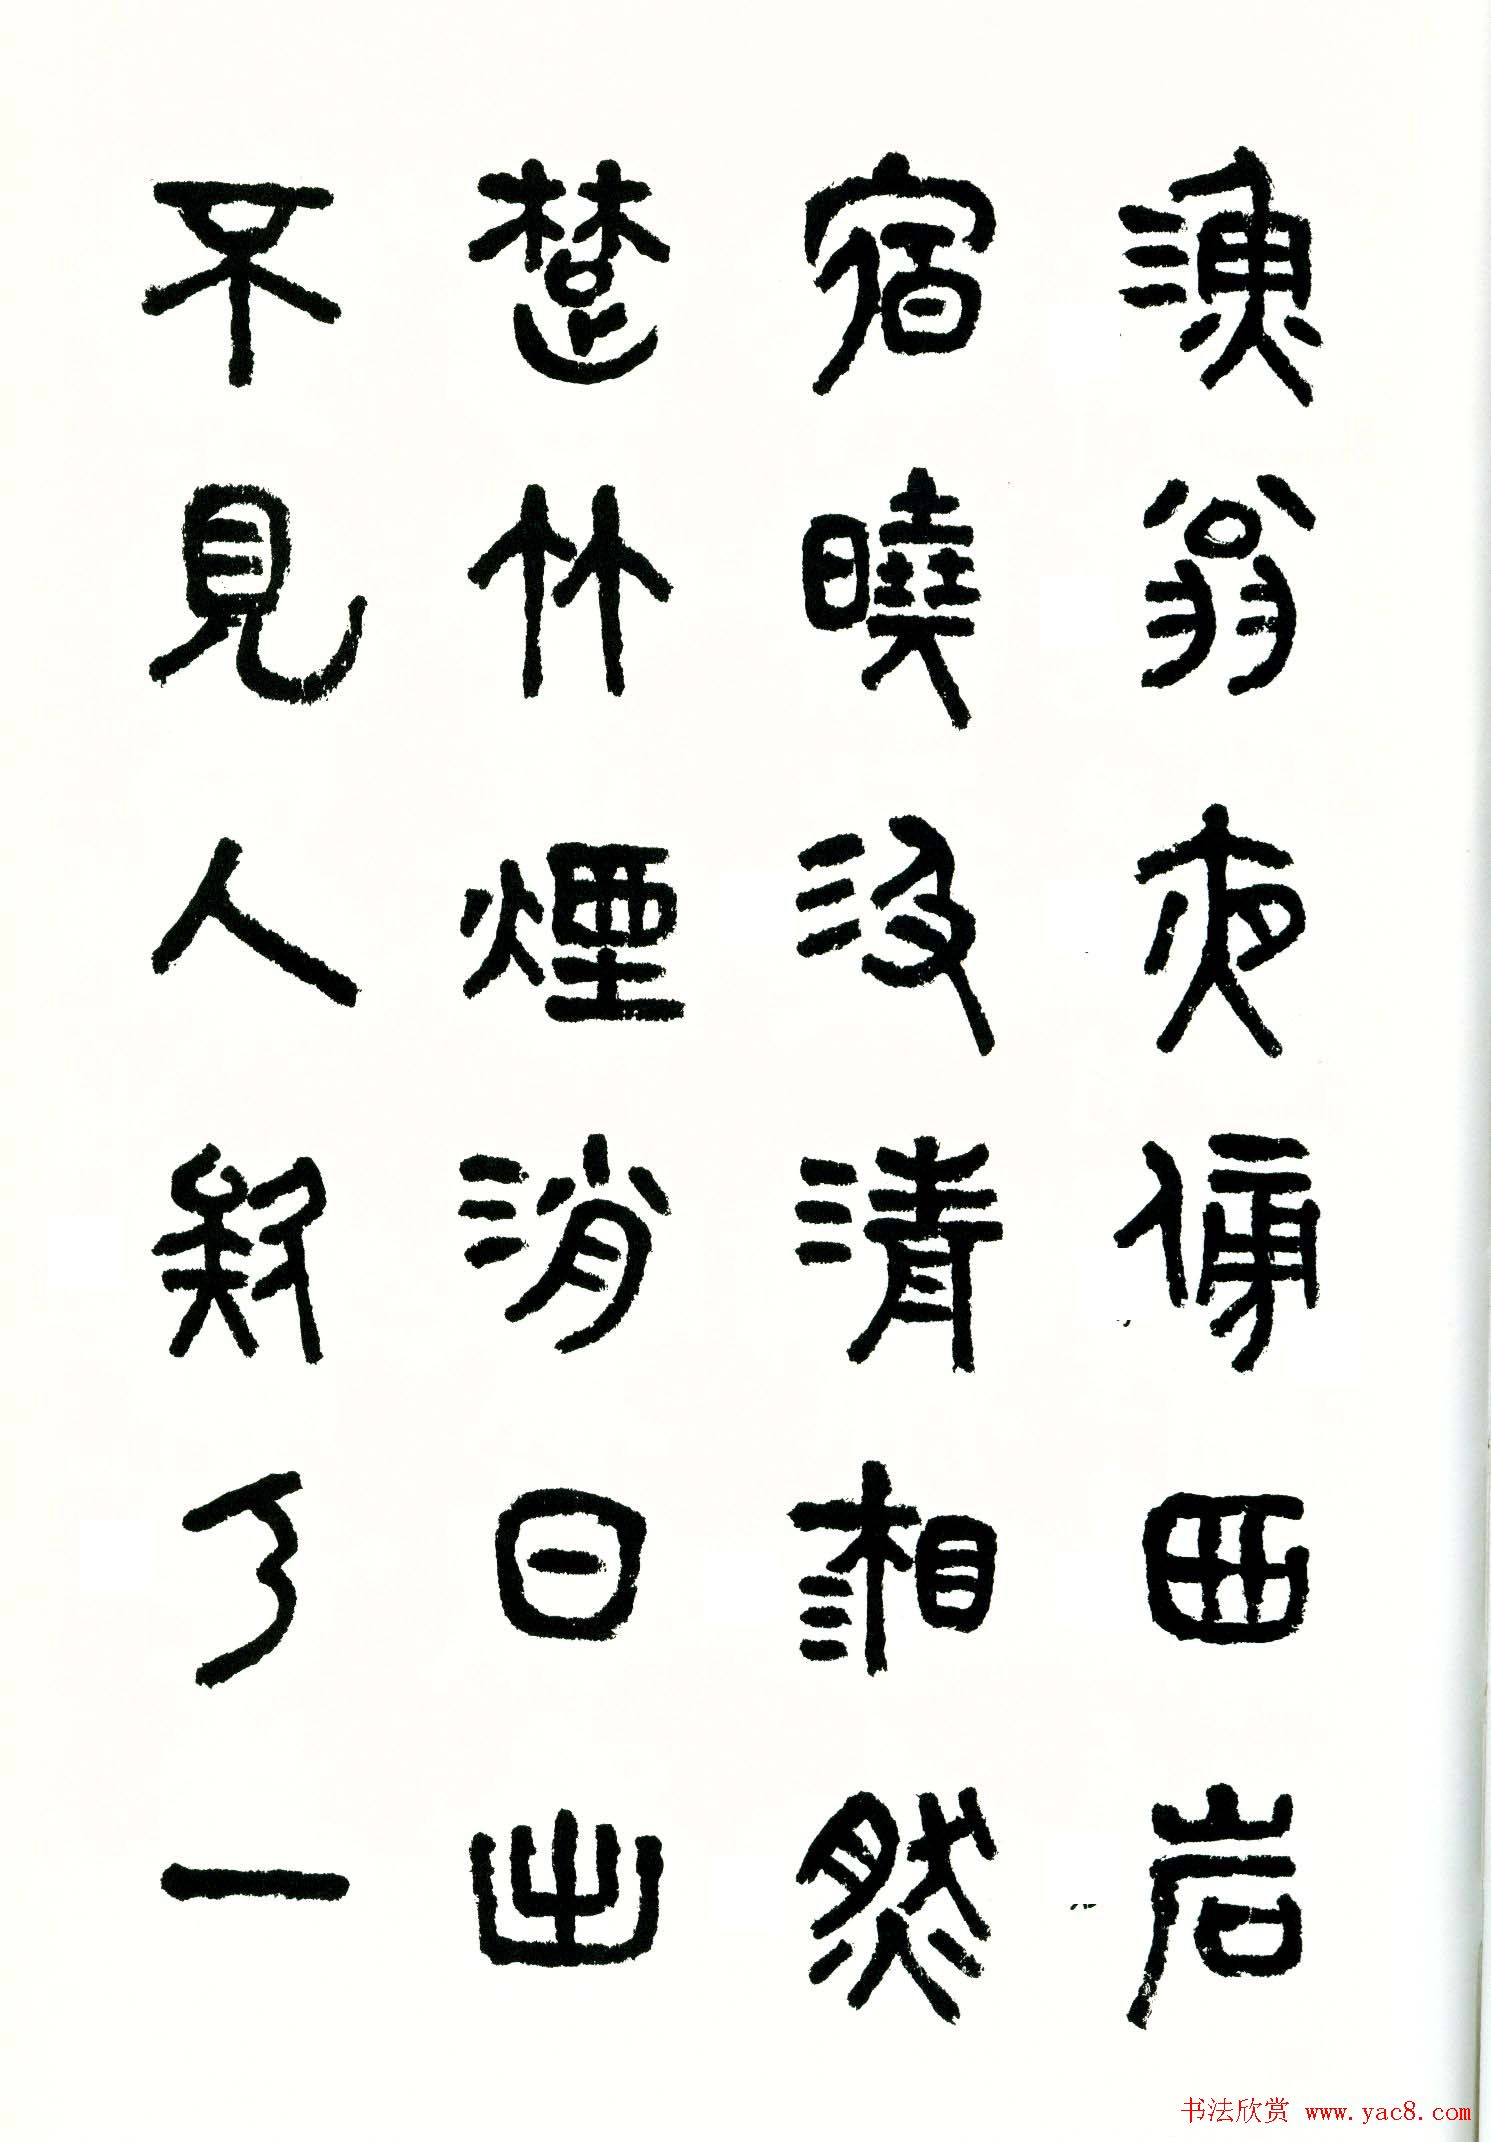 漁翁夜傍西岩
宿曉汲清湘然
楚竹煙消日出
不見人欸乃一
书法欣赏 www.yac8.com